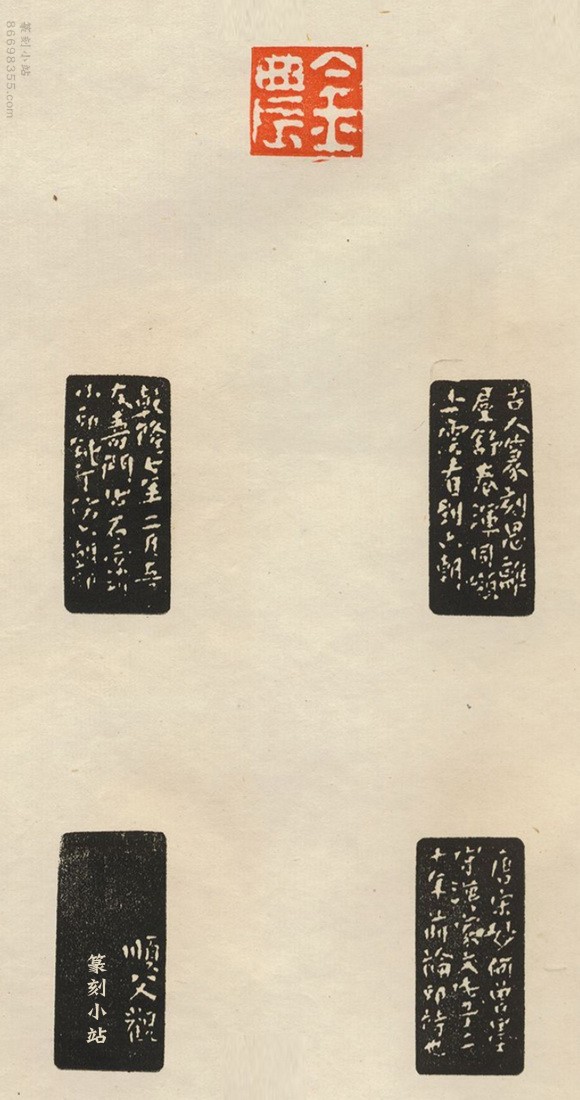 篆刻小站
86698355.com
金農
古人篆刻思離
羣舒卷渾同嶺
上雲看到六朝
唐宋妙何曾墨
守漢家文此丁二
十年前論印詩也
乾隆七年二月吾
友壽門出石索
小印鈍丁仿六朝
順父觀
篆刻小站